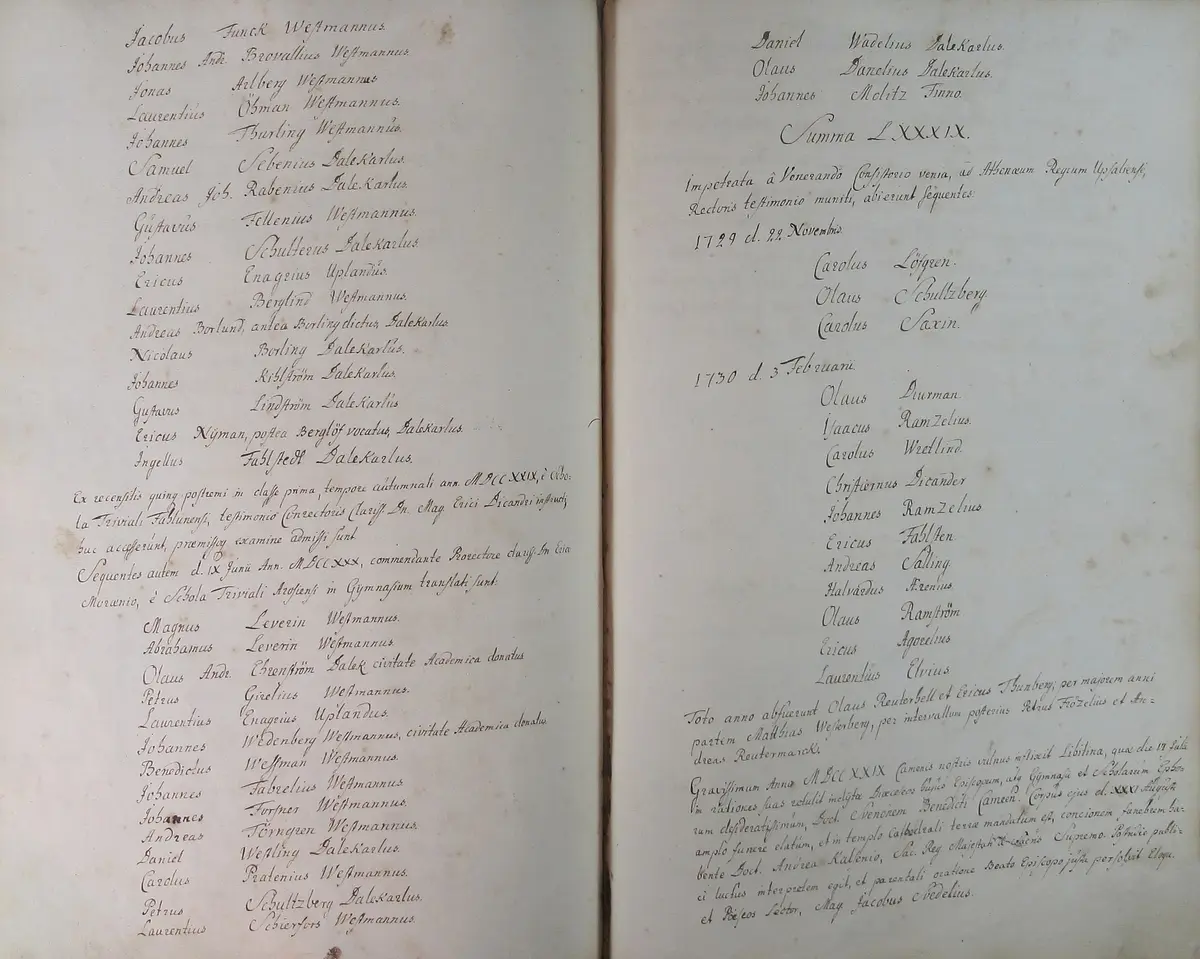 Jacobus Funck Westmannus.
Johannes Andr. Brovallius Westmannus.
Jonas Arlberg Westmannus
Laurentius Öhman Westmannus.
Johannes Thurling Westmannus.
Samuel Sebenius Dalekarlus.
Andreas Joh. Rabenius Dalekarlus.
Gustavus Fellenius Westmannus.
Johannes Schulterus Dalekarlus
Ericus Enagrius Uplandus.
Laurentius Berglind Westmannus.
Andreas Borlund, antea Borling dictus, Dalekarlus.
Nicolaus Borling Dalekarlus.
Johannes Kihlström Dalekarlus.
Gustavus Lindström Dalekarlus
Ericus Nyman, postea Berglöf vocatus, Dalekarlus.
Ingellus Fahlstedt Dalekarlus.
Ex recensitis quinq postremi in classe prima, tempore autumnali ann. MDCCXXIX, è Scho-
la Triviali Fahlunensi, testimonio Conrectoris Clariss. Dn. Mag. Erici Dicandri instructi,
huc accesserunt, præmissoq examine admissi sunt
Sequentes autem d. IX Junii Ann. MDCCXXX, commendante Prorectore clariss. Dn Erico
Morænio, è Schola Triviali Arosiensi in Gymnasium translati sunt:
Magnus Leverin Westmannus.
Abrahamus Leverin Westmannus.
Olaus Andr. Ehrenström Dalek. civitate Academica donatus
Petrus Girelius Westmannus.
Laurentius Enagrius Uplandus.
Johannes Wedenberg Westmannus, civitate Academica donatus
Benedictus Westman Westmannus.
Johannes Fabrelius Westmannus
Johannes Forsner Westmannus.
Andreas Törngren Westmannus.
Daniel Westling Dalekarlus.
Carolus Pratenius Westmannus.
Petrus Schultzberg Dalekarlus.
Laurentius Schierfors Westmannus.
Daniel Wadelius Dalekarlus.
Olaus Danelius Dalekarlus.
Johannes Molitz Finno.
Summa LXXXIX.
Impetrata â Venerando Consistorio venia, ad Athenæum Regium Upsaliense,
Rectoris testimonio muniti, abierunt sequentes:
1729 d. 22 Novembris.
Carolus Löfgren.
Olaus Schultzberg.
Carolus Saxin.
1730 d. 3 Februarii
Olaus Diurman.
Isaacus Ramzelius.
Carolus Wretlind.
Christiernus Dicander
Johannes Ramzelius
Ericus Fahlsten.
Andreas Salling
Halvardus Ærenius
Olaus Ramström
Ericus Agorelius
Laurentius Elvius
Toto anno abfuerunt Olaus Reuterhell et Ericus Thunberg; per majorem anni
partem Matthias Westerberg; per intervallum posterius Petrus Frözelius et An-
dreas Reutermarck.
Gravissimum Anno MDCCXXIX Camenis nostris vulnus inflixit Libitina, quæ die 18 Julii
in rationes suas retulit inclytæ Dioeceseos hujus Episcopum, atq Gymnasii et Scholarum Epho-
rum desideratissimum, Doct. Svenonem Benedicti Cameen. Corpus ejus d. XXXI Augusti
amplo funere elatum, et in templo Cathedrali terræ mandatum est, concionem funebrem ha-
bente Doct. Andrea Kalsenio, Sac. Reg. Majestatis Supremo. Postridie publi-
ci luctus interpretem egit, et parentali oratione Beato Episcopo justa persolvit Eloqu.
et Poëseos Lector, Mag. Jacobus Svedelius.